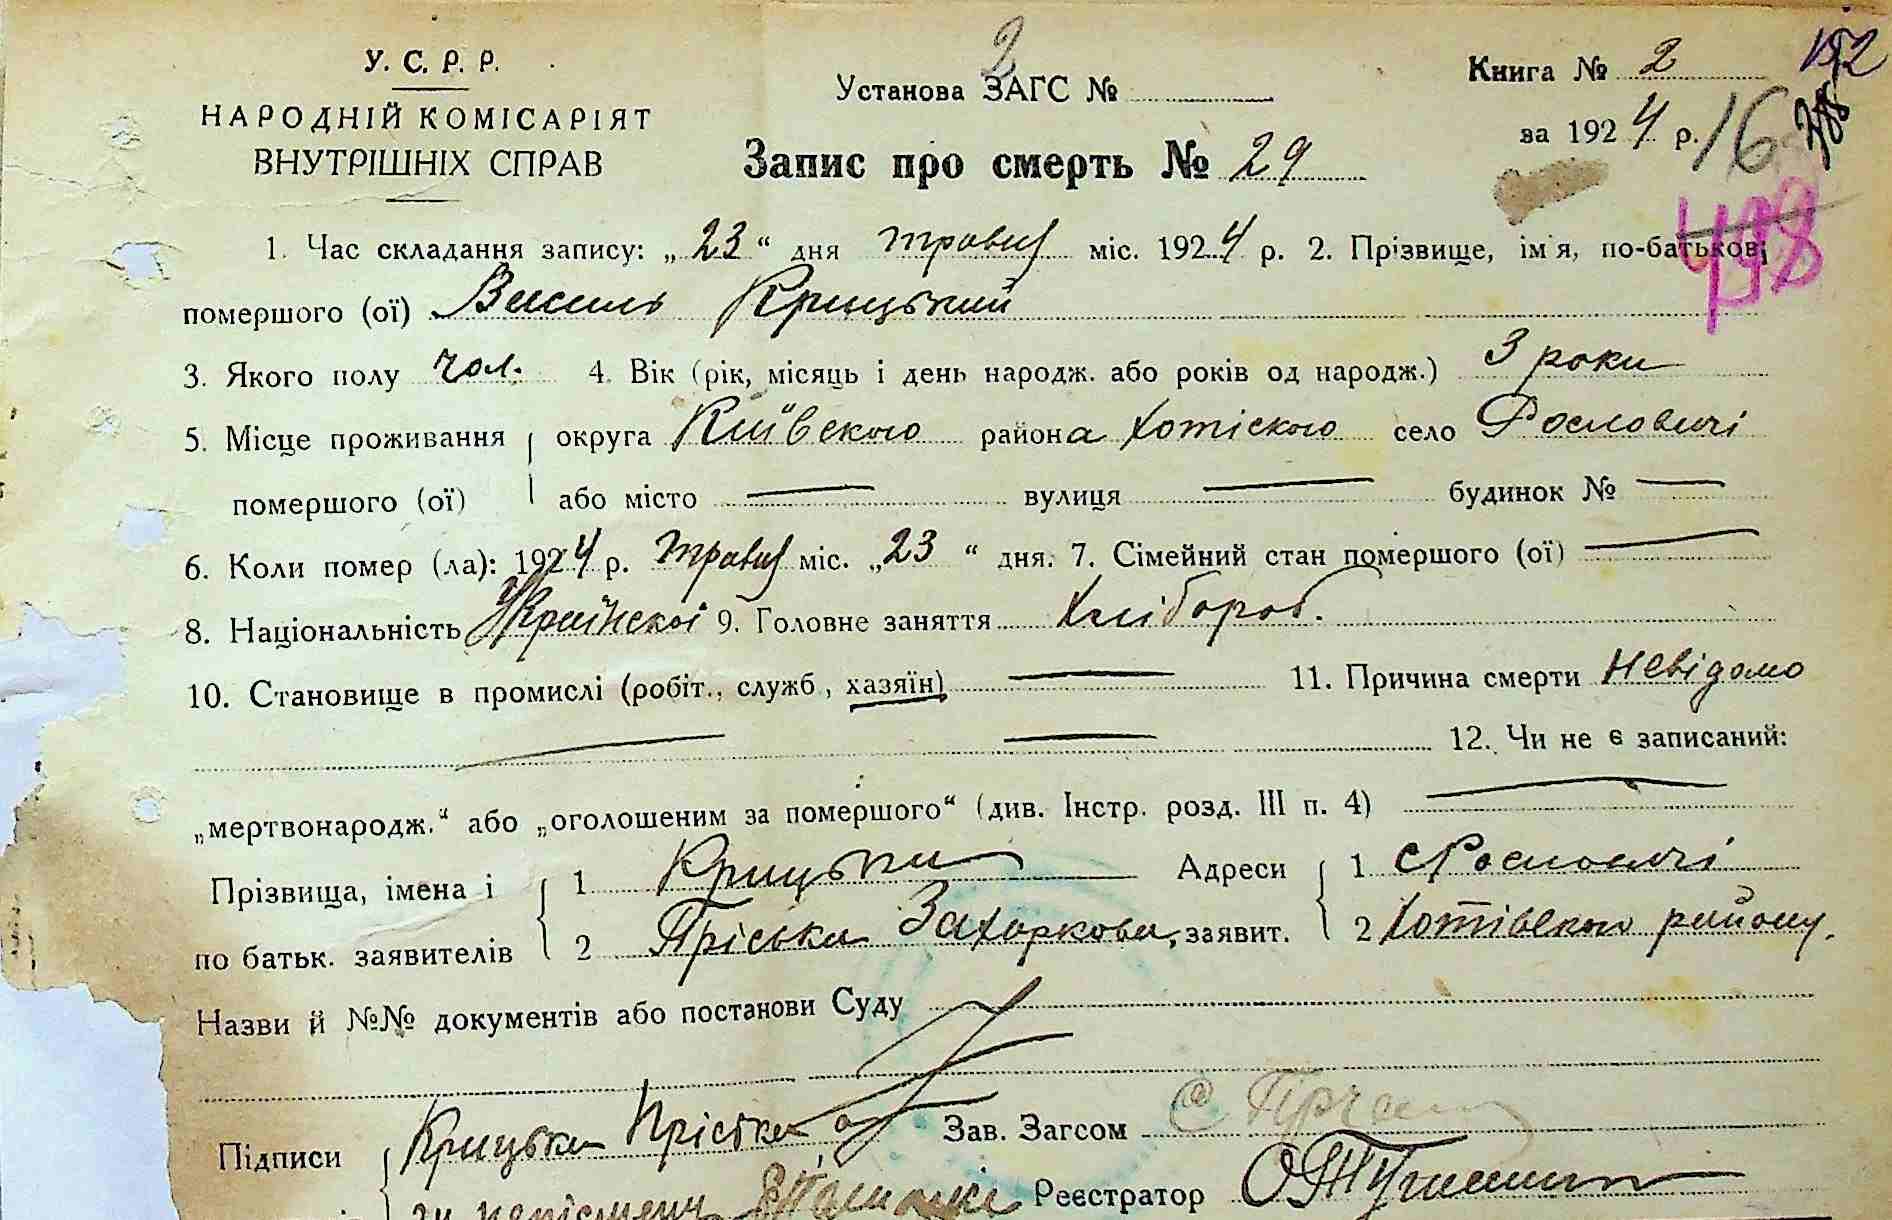 У. С. Р. Р.
НАРОДНІЙ КОМІСАРІЯТ
ВНУТРІШНІХ СПРАВ
Установа ЗАГС № 2
Запис про смерть № 29
Книга № 2
за 1924 р.
152
16
498
1. Час складання запису: „23“ дня травня міс. 1924 р. 2. Прізвище, ім'я, по-батькові
помершого (ої) Василь Крицький
3. Якого полу чол. 4. Вік (рік, місяць і день народж. або років од народж.) 3 роки
5. Місце проживання округа Київского района Хотіского село Рословичі
помершого (ої) або місто вулиця будинок №
6. Коли помер (ла): 1924 р. травня міс. „23“ дня. 7. Сімейний стан помершого (ої)
8. Національність Українскої 9. Головне заняття Хлібороб.
10. Становище в промислі (робіт., служб, хазяїн) 11. Причина смерти Невідомо
12. Чи не є записаний:
„мертвонародж.“ або „оголошеним за помершого“ (див. Інстр. розд. III п. 4)
Прізвища, імена і 1 Крицька Адреси 1 с Рословичі
по батьк. заявителів 2 Пріська Захаркова, заявит. 2 Хотівского району.
Назви й №№ документів або постанови Суду
Підписи Крицька Пріська а Зав. Загсом
Реєстратор